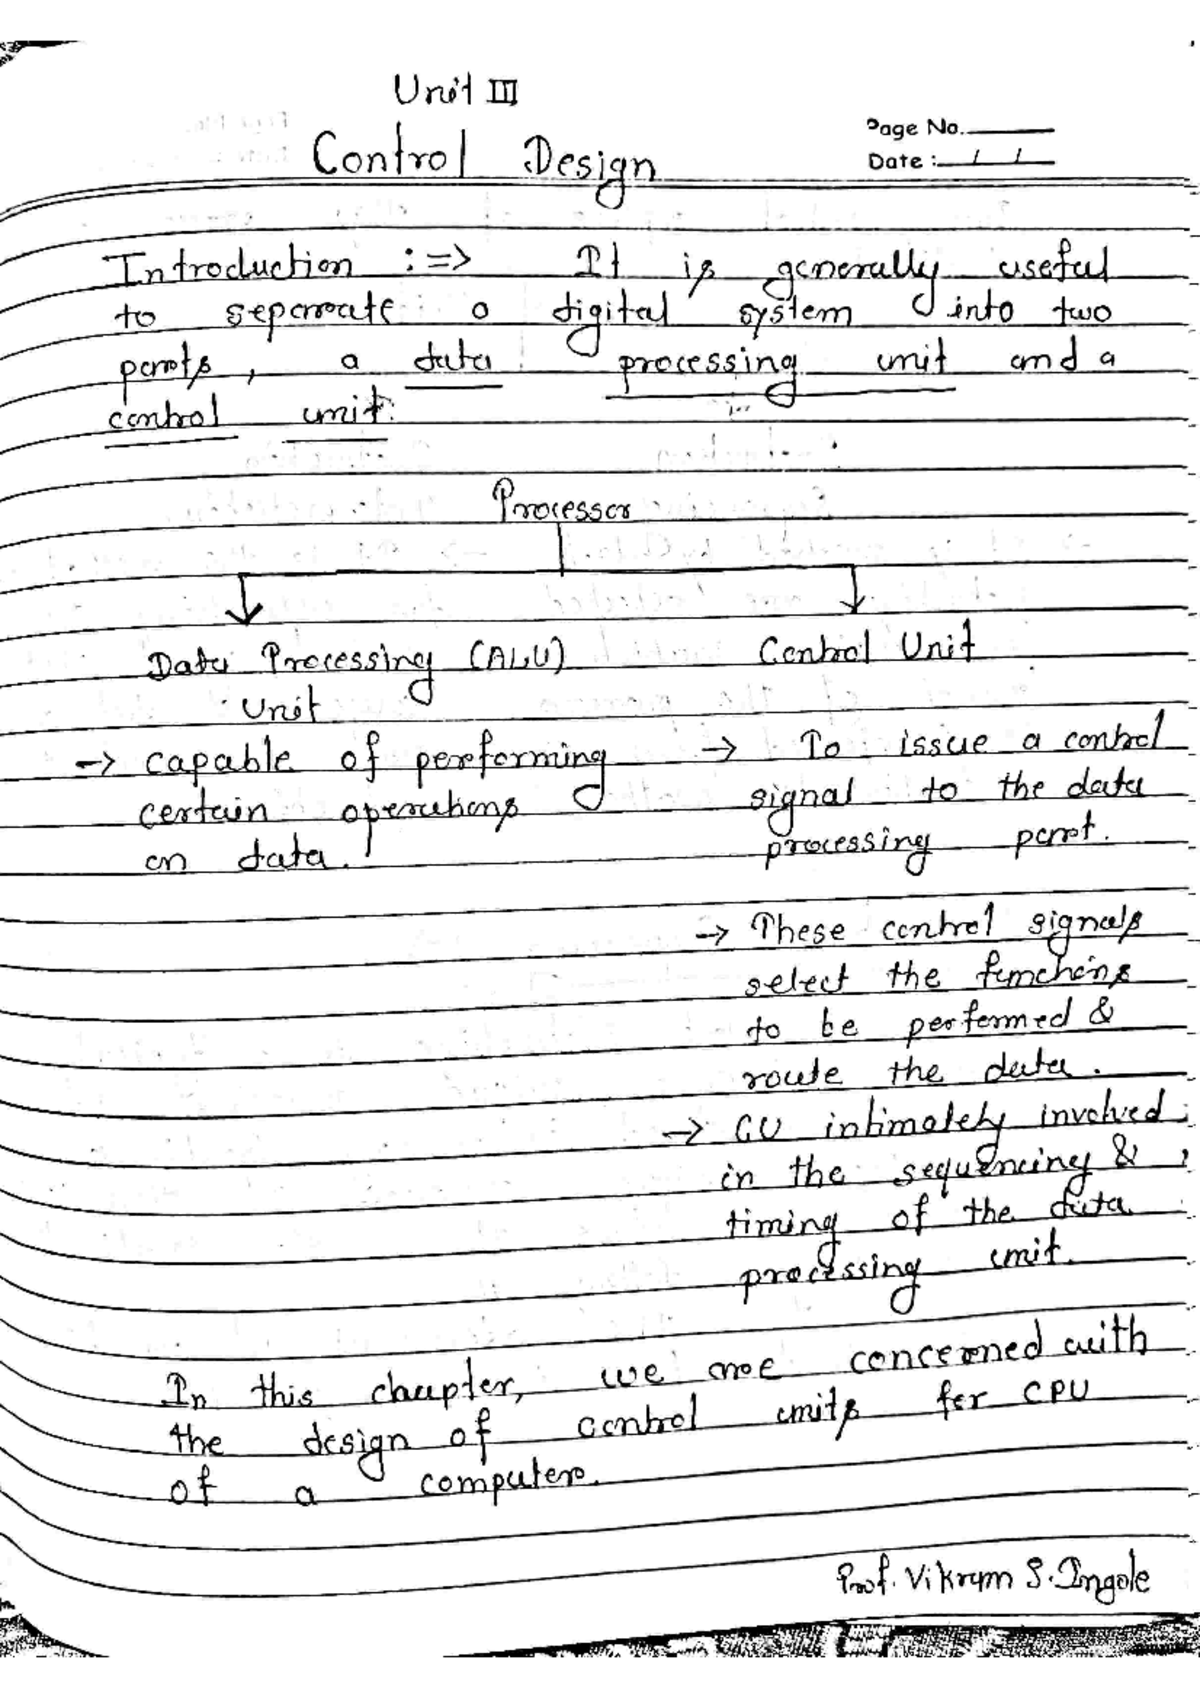 Unit III
Control Design
Page No.
Date : / /
Introduction :=> It is generally useful
to seperate a digital system into two
parts, a data processing unit and a
control unit.
Processor
Data Processing (ALU)
Unit
-> capable of performing
certain operations
on data.
Control Unit
-> To issue a control
signal to the data
processing part.
-> These control signals
select the functions
to be performed &
route the data.
-> CU intimately involved
in the sequencing &
timing of the data
processing unit.
In this chapter, we are concerned with
the design of control units for CPU
of a computer.
Prof. Vikram S. Ingole